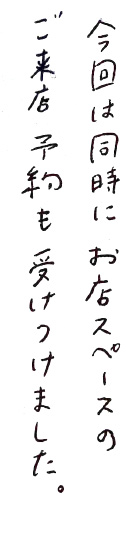 今回は同時にお店スペースの
ご来店予約も受けつけました。